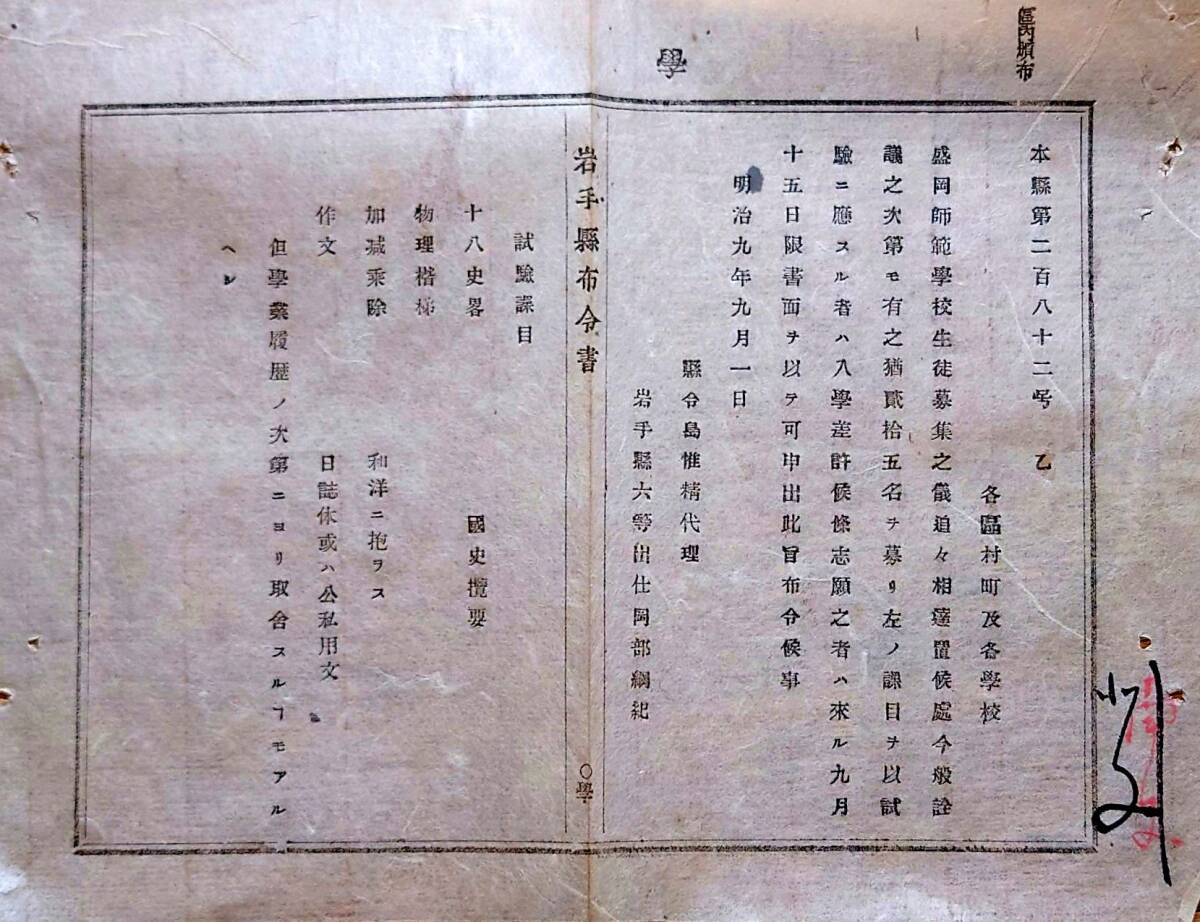 區內頒布
學
本縣第二百八十二号 乙
各區村町及各學校
盛岡師範學校生徒募集之儀追々相達置候處今般詮
議之次第モ有之猶貳拾五名ヲ募リ左ノ課目ヲ以試
驗ニ應スル者ハ入學差許候條志願之者ハ來ル九月
十五日限書面ヲ以テ可申出此旨布令候事
明治九年九月一日
縣令島惟精代理
岩手縣六等出仕岡部綱紀
岩手縣布令書 〇學
試驗課目
十八史畧 國史攬要
物理楷梯
加减乘除 和洋ニ抱ラス
作文 日誌体或ハ公私用文
但學業履歴ノ次第ニヨリ取舍スルヿモアル
ヘシ